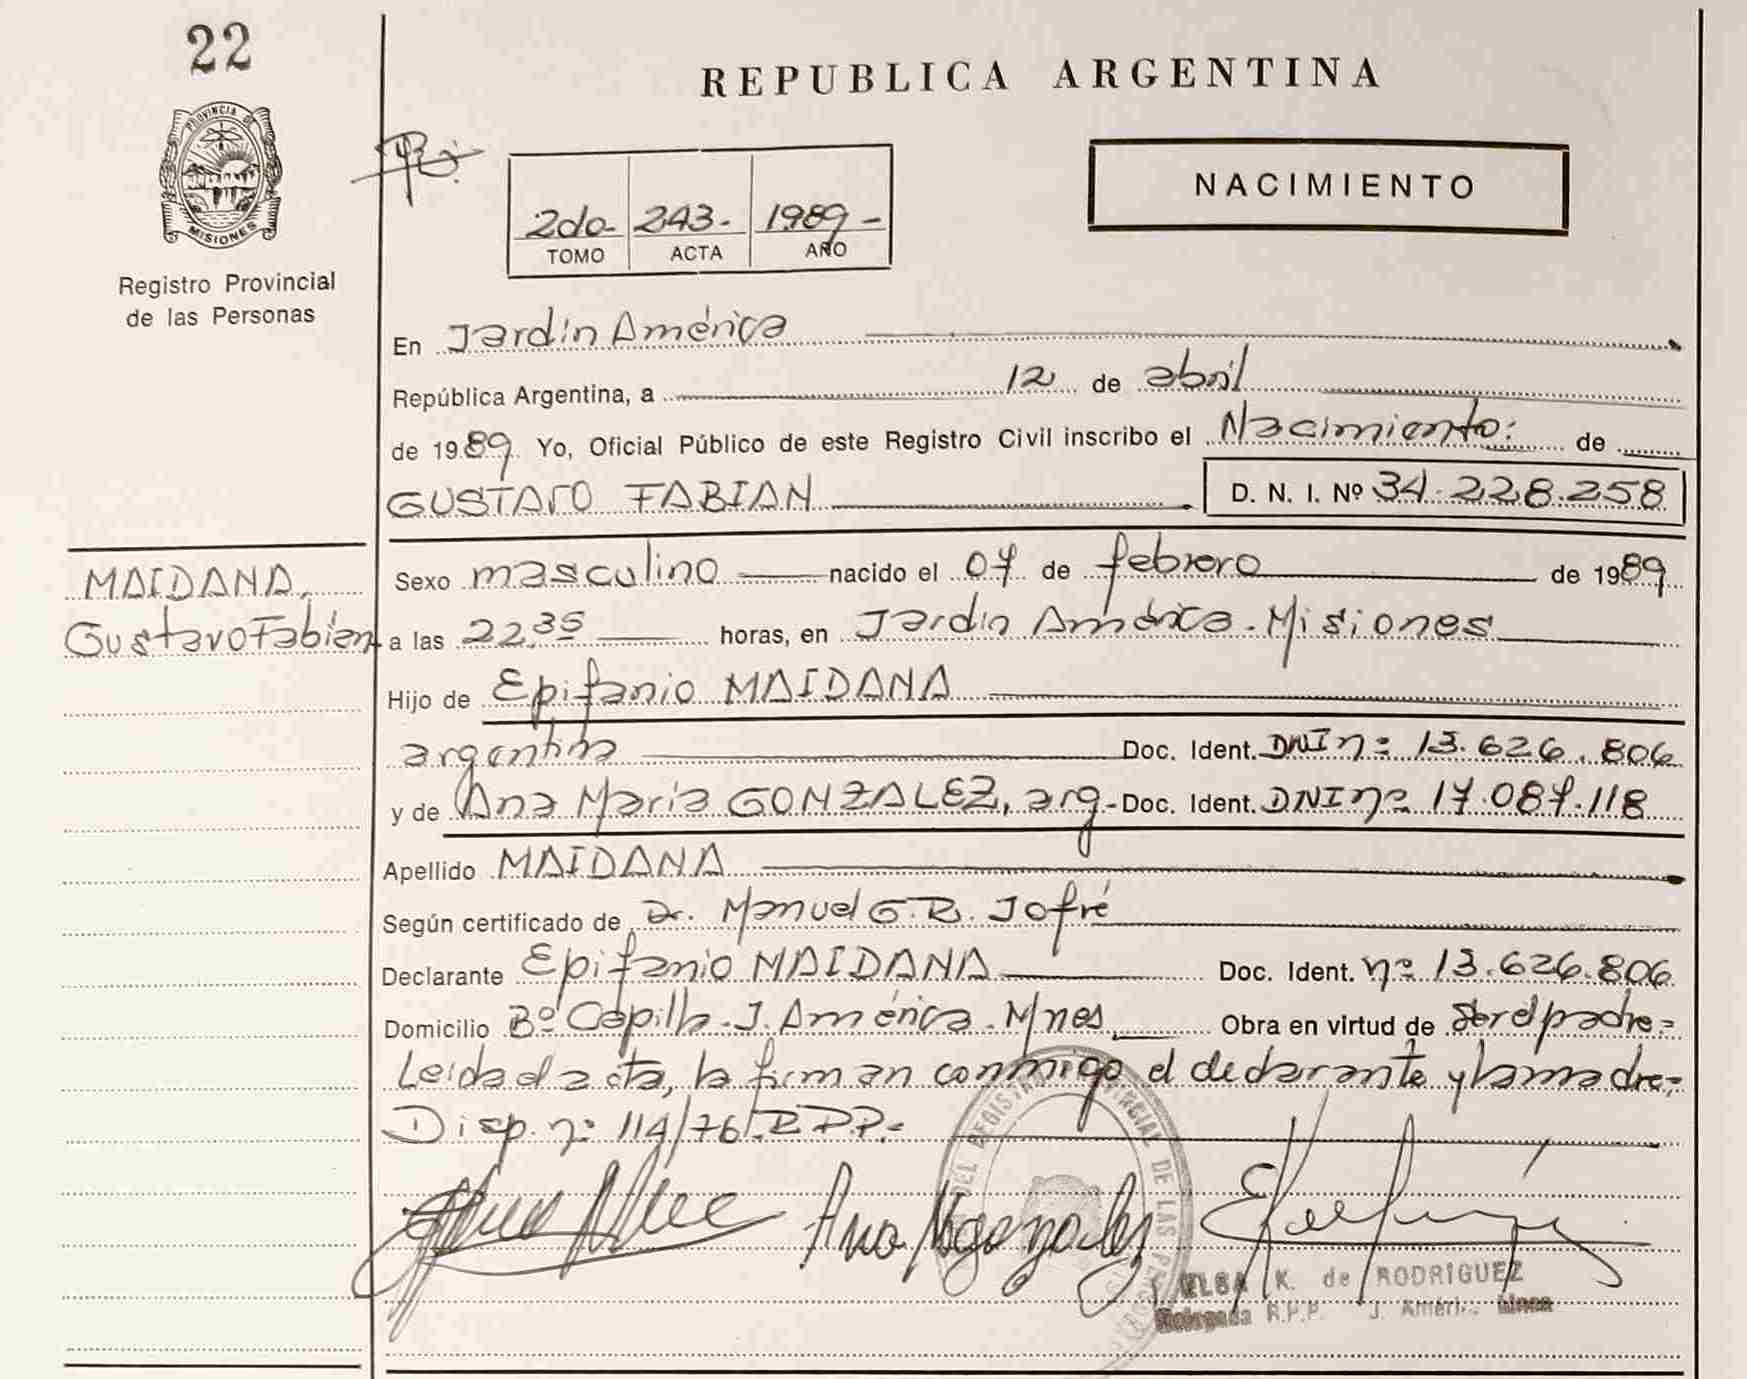 22
PROVINCIA DE
MISIONES
Registro Provincial
de las Personas
REPUBLICA ARGENTINA
NACIMIENTO
2do- 243- 1989-
TOMO ACTA AÑO
En Jardín América
República Argentina, a 12 de abril
de 1989 Yo, Oficial Público de este Registro Civil inscribo el Nacimiento: de
GUSTAVO FABIAN D. N. I. Nº 34.228.258
MAIDANA,
Gustavo Fabián
Sexo masculino nacido el 07 de febrero de 1989
a las 22,35 horas, en Jardín América - Misiones
Hijo de Epifanio MAIDANA
argentina Doc. Ident. DNI nº 13.626.806
y de Ana María GONZALEZ, arg- Doc. Ident. DNI nº 17.087.118
Apellido MAIDANA
Según certificado de Dr. Manuel G.R. Jofré
Declarante Epifanio MAIDANA Doc. Ident. nº 13.626.806
Domicilio Bº Capilla - J. América - Mnes, Obra en virtud de Ser el padre=
Leída el acta, la firman conmigo el declarante y la madre=
Disp. nº 114/76 R.P.P.-
DEL REGISTRO PROVINCIAL DE LAS
Ana M gonzalez
ELSA K. de RODRIGUEZ
Delegada R.P.P. J. Améri. Mnes